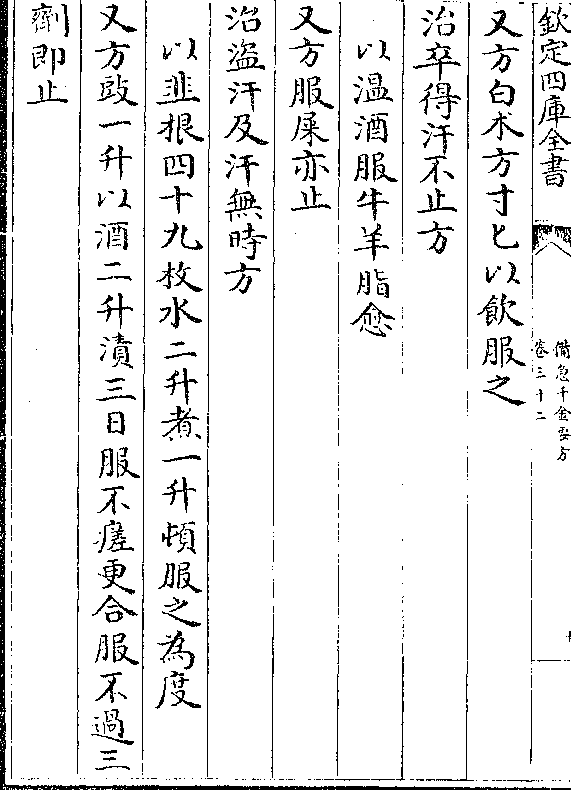 欽定四庫全書
備急千金要方
卷三十二
又方白术方寸匕以飲服之
治卒得汗不止方
以温酒服牛羊脂愈
又方服屎亦止
治盜汗及汗無時方
以韭根四十九枚水二升煮一升頓服之為度
又方豉一升以酒二升漬三日服不瘥更合服不過三
劑即止